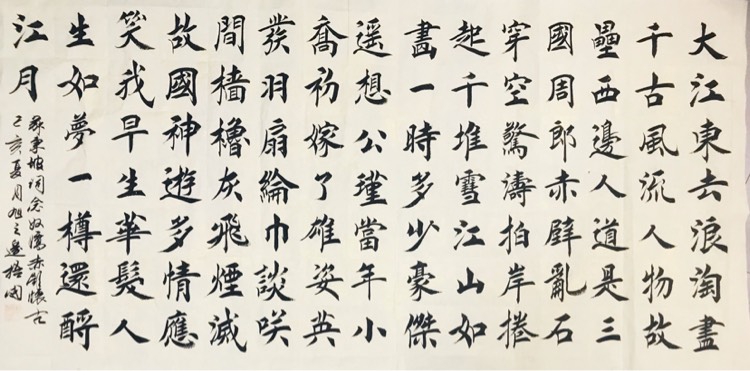 大江東去浪淘盡
千古風流人物故
壘西邊人道是三
國周郎赤壁亂石
穿空驚濤拍岸捲
起千堆雪江山如
畫一時多少豪傑
遥想公瑾當年小
喬初嫁了雄姿英
發羽扇綸巾談咲
間檣櫓灰飛煙滅
故國神遊多情應
笑我早生華髮人
生如夢一樽還酹
江月
蘇東坡詞念奴嬌赤壁懷古
己亥夏月旭之